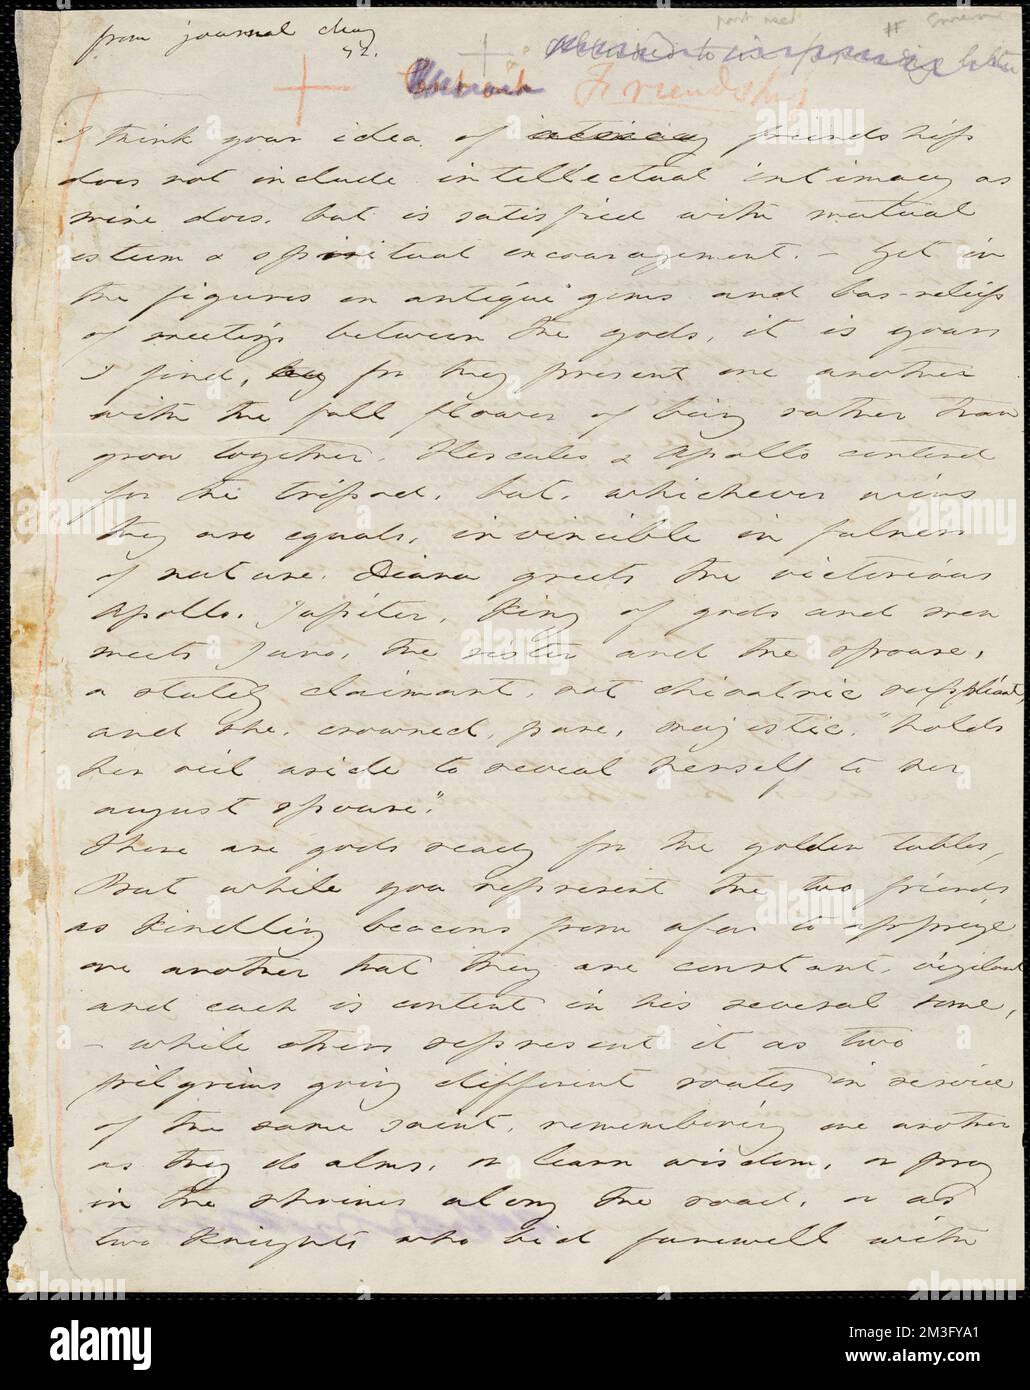 from journal
42.
Friendship
I think your idea of friendship
does not include intellectual intimacy as
mine does, but is satisfied with mutual
esteem & spiritual encouragement. – Yet in
the figures on antique gems and bas-reliefs
of meetings between the gods, it is yours
I find, for they present one another
with the full flower of being rather than
grow together. Hercules & Apollo contend
for the tripod, but, whichever wins
they are equals, invincible in fulness
of nature. Diana greets the victorious
Apollo. Jupiter, King of gods and men
meets Juno, the sister and the spouse,
a stately claimant, not chivalric suppliant,
and she, crowned, pure, majestic, "holds
her veil aside to reveal herself to her
august spouse".
There are gods ready for the golden tables,
But while you represent the two friends
as kindling beacons from afar to apprize
one another that they are constant, vigilant
and each is content in his several home,
– while others represent it as two
pilgrims going different routes in service
of the same saint, remembering one another
as they do alms, or learn wisdom, or pray
in the shrines along the road, or as
two Knights who bid farewell with
alamy
Image ID: 2M3FYA1
www.alamy.com